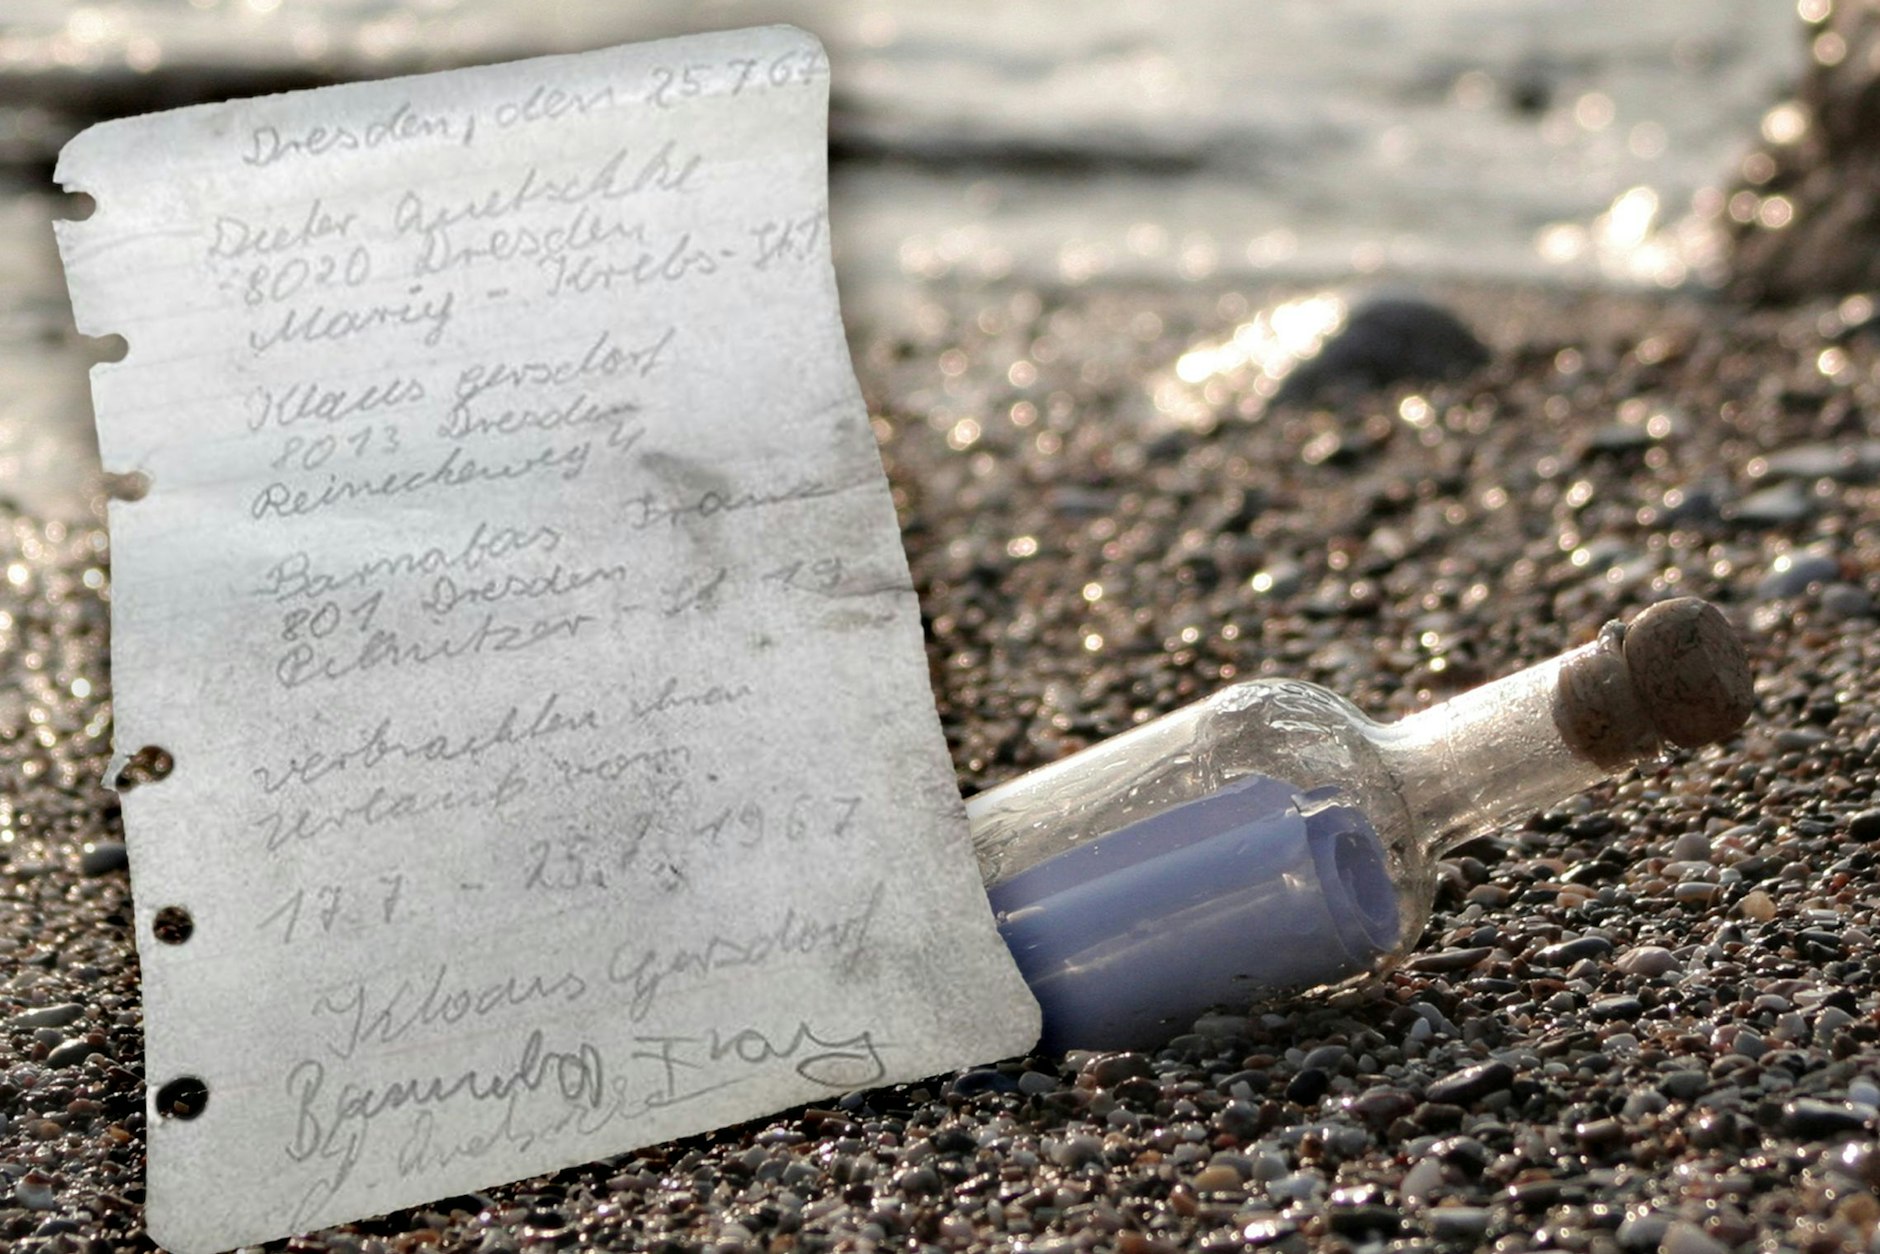 Dresden, den 25.7.67
Dieter Quetschke
8020 Dresden
Marie - Krebs-Str.
Klaus Gersdorf
8013 Dresden
Reineckeweg 4
Barnabas Franz
801 Dresden
Pillnitzer - St 19
verbrachten ihren
Urlaub vom
17.7. - 25.7. 1967
Klaus Gersdorf
Barnabas Franz
D. Quetschke